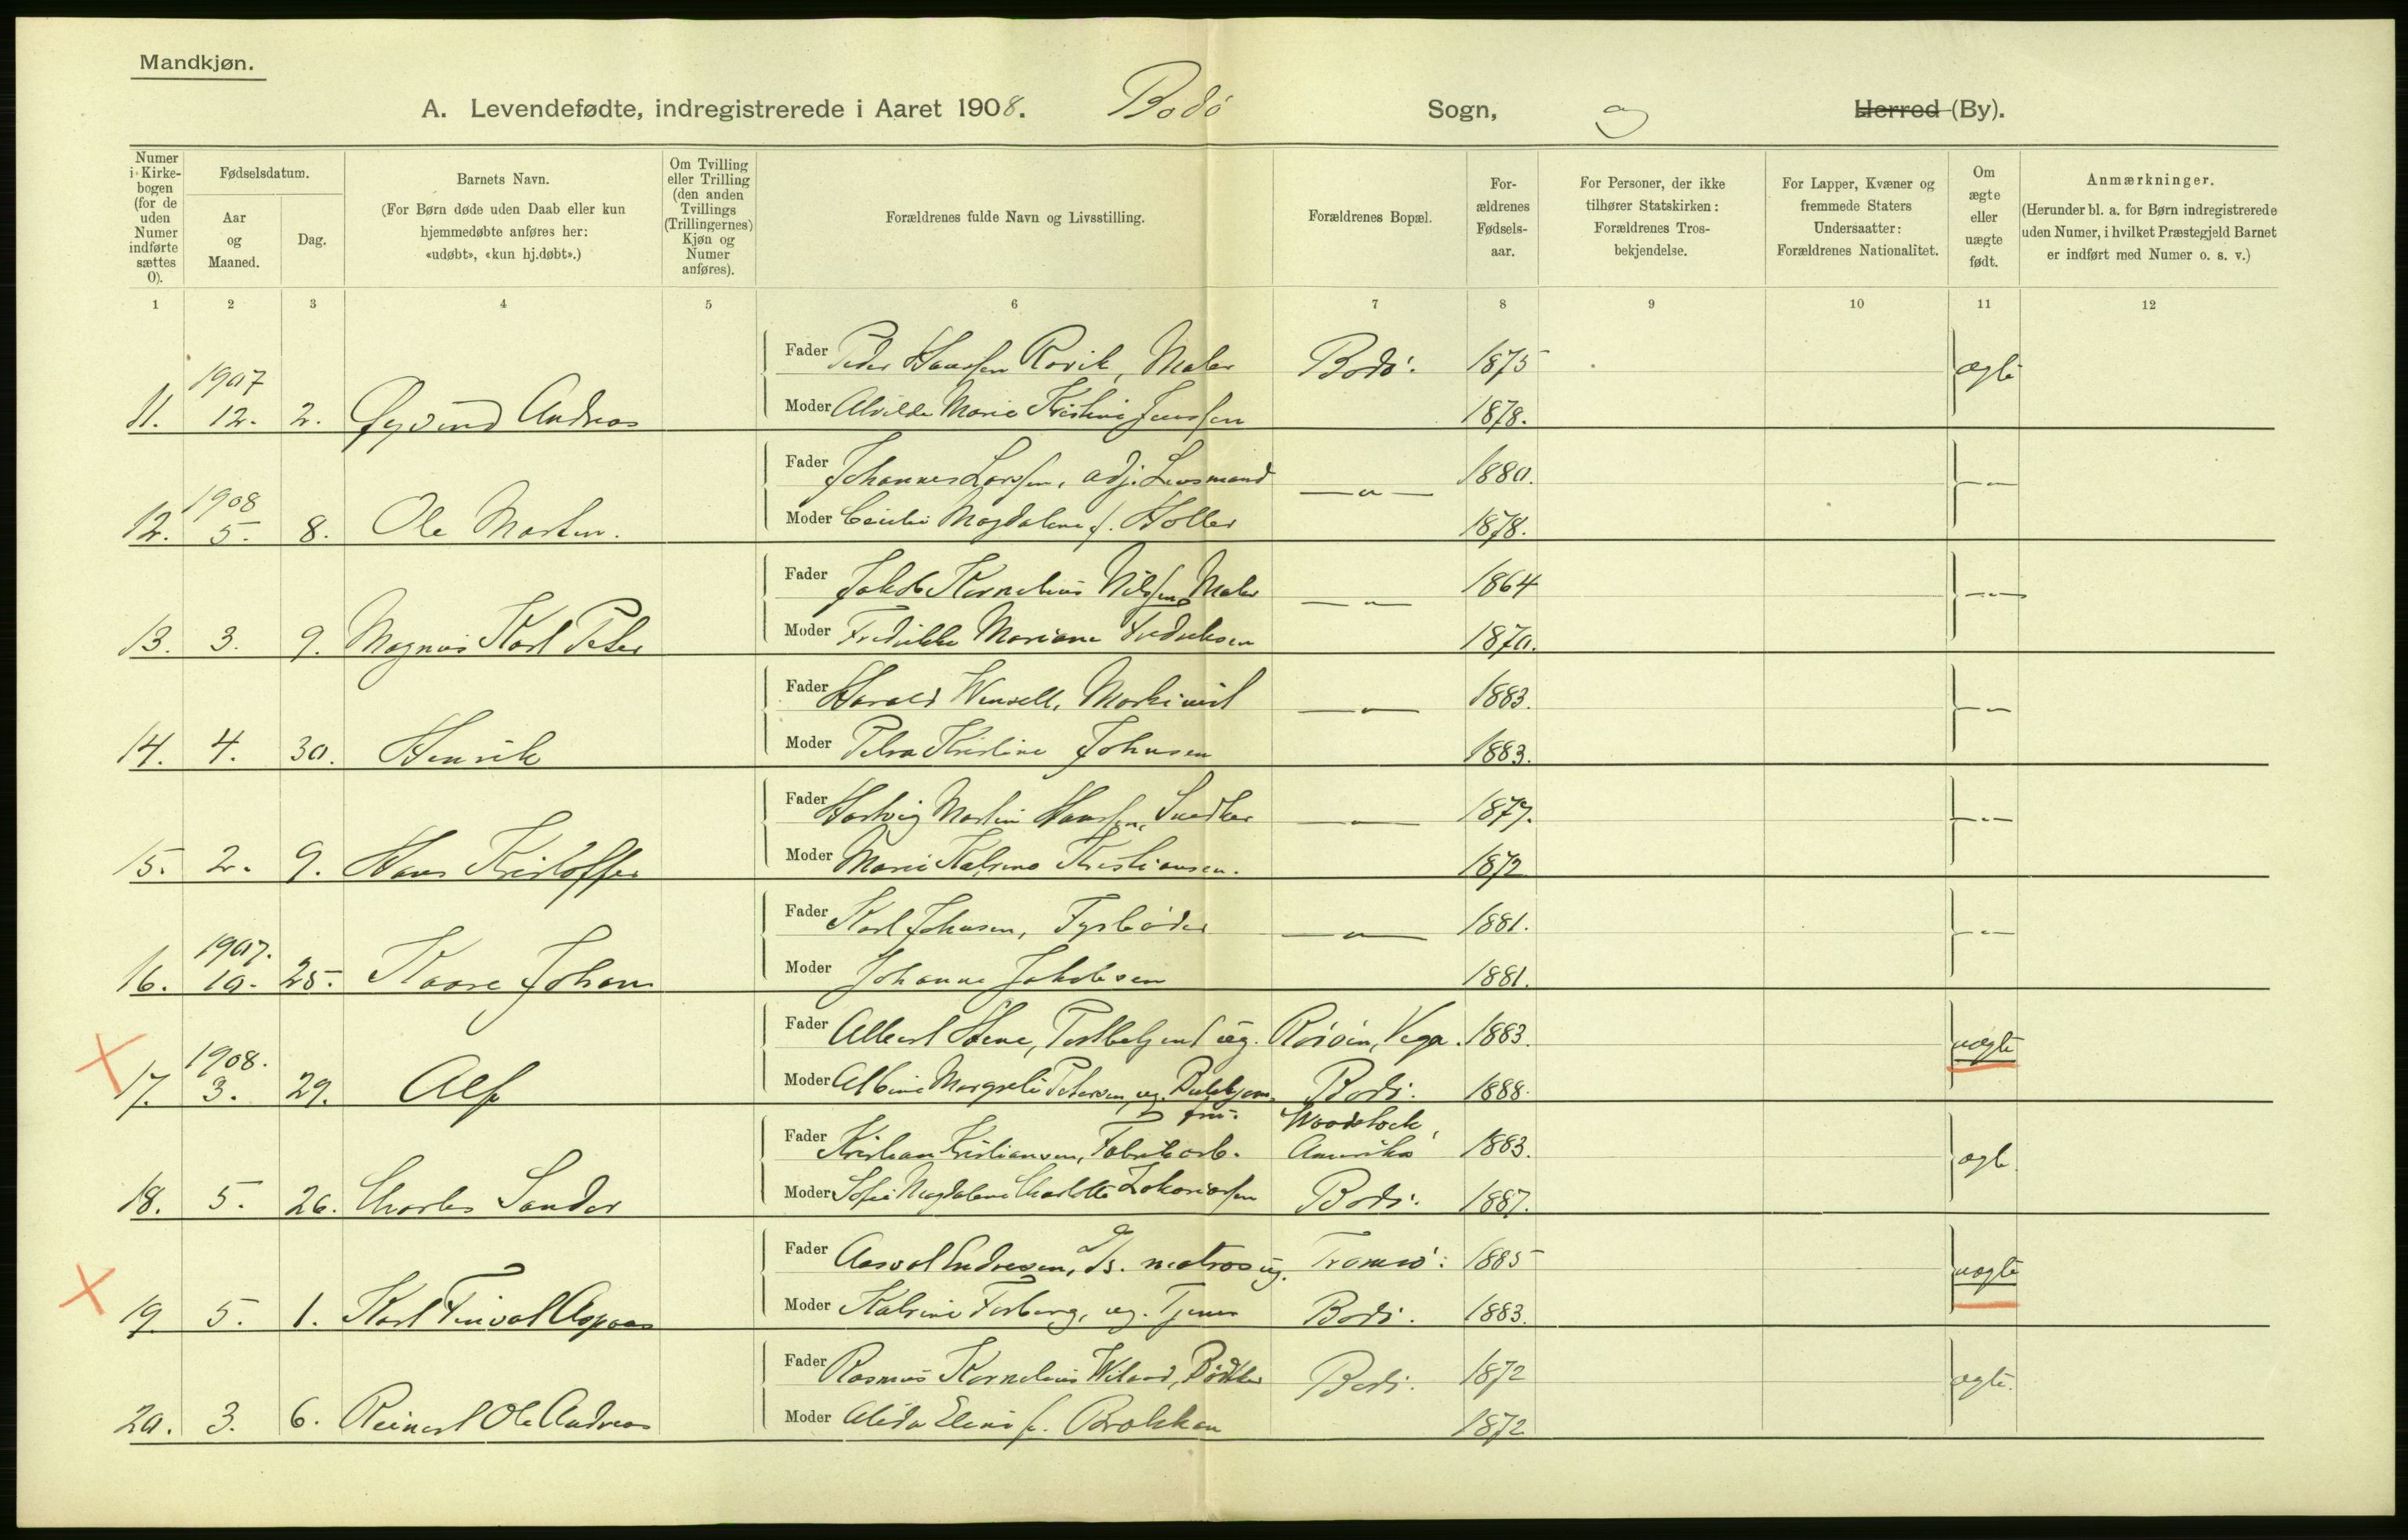 Mandkjøn.
A. Levendefødte, indregistrerede i Aaret 1908. Bodö Sogn, og Herred (By).
Numer i Kirkebogen (for de uden Numer indførte sættes 0).
Fødselsdatum.
Aar og Maaned.
Dag.
Barnets Navn.
(For Børn døde uden Daab eller kun hjemmedøbte anføres her: «udøbt», «kun hj.døbt».)
Om Tvilling eller Trilling (den anden Tvillings (Trillingernes) Kjøn og Numer anføres).
Forældrenes fulde Navn og Livsstilling.
Forældrenes Bopæl.
Forældrenes Fødselsaar.
For Personer, der ikke tilhører Statskirken: Forældrenes Trosbekjendelse.
For Lapper, Kvæner og fremmede Staters Undersaatter: Forældrenes Nationalitet.
Om ægte eller uægte født.
Anmærkninger.
(Herunder bl. a. for Børn indregistrerede uden Numer, i hvilket Præstegjeld Barnet er indført med Numer o. s. v.)
1 2 3 4 5 6 7 8 9 10 11 12
Fader Peder Hanssen Rovik, Maler Bodö. 1875 ægte
1907
11. 12. 2. Øyvind Andreas Moder Alvilde Marie Kristine Jenssen 1878.
Fader Johannes Larssen, adj. Lensmand —„— 1880. —„—
1908
12. 5. 8. Ole Morten. Moder Cecilie Magdalene f. Holler 1878.
Fader Jakob Kornelius Nilssen, Maler —„— 1864 —„—
13. 3. 9. Magnus Karl Peter Moder Fredrikke Mariane Fredriksen 1870.
Fader Harald Wensell, Maskinist —„— 1883. —„—
14. 4. 30. Henrik Moder Petra Kristine Johnsen 1883.
Fader Hartvig Martin Hanssen, Snedker —„— 1877. —„—
15. 2. 9. Hans Kristoffer Moder Marie Katrine Kristiansen. 1872
Fader Karl Johnsen, Fyrböder —„— 1881. —„—
1907.
16. 10. 25. Kaare Johan Moder Johanne Jakobsen 1881.
Fader Albert Stene, Postbetjent ug. Röröen, Vega. 1883. uægte
1908.
17. 3. 29. Alf Moder Albine Margrete Petersen, ug. Bodö. 1888.
Woodstock,
Fader Kristian Kristiansen, Fabrikarb. Amerika 1883. ægte
18. 5. 26. Charles Sander Moder Sofie Magdalene Charlotte Zakariassen Bodö. 1887.
Fader Endresen, ds. matros ug. Tromsö. 1885 uægte
19. 5. 1. Karl Moder Katrine Forberg, ug. Tjener Bodö. 1883.
Fader Rasmus Kornelius Wiland, Bödker Bodö. 1872 ægte.
20. 3. 6. Reinert Ole Andreas Moder Alida Eline f. Brokken 1872